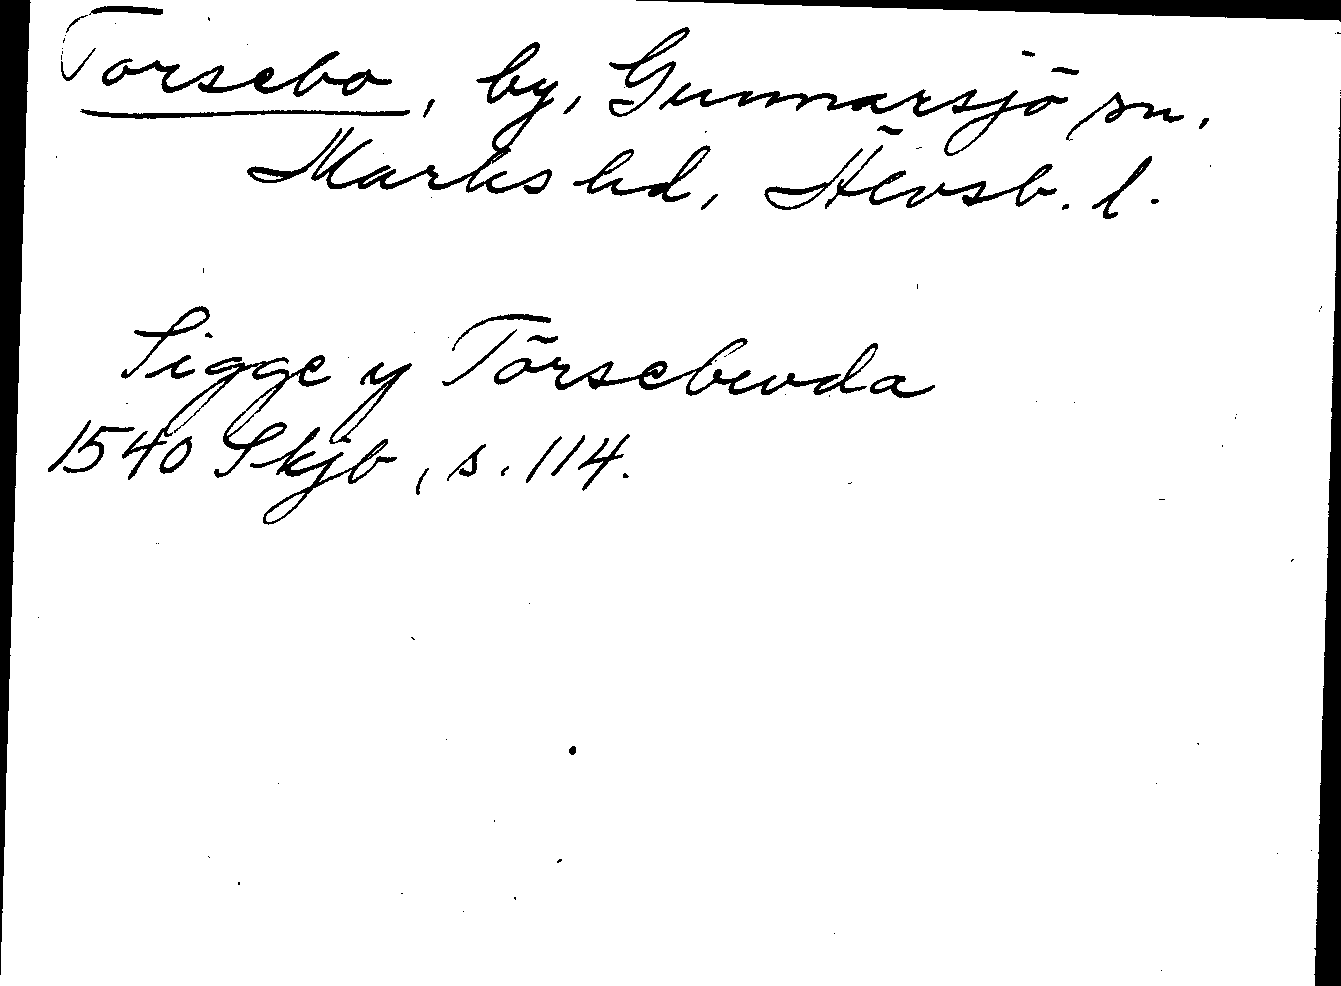 Torsebo, by, Gunnarsjö sn,
Marks hd, Älvsb. l.
Sigge y Törsebwda
1540 Skjb, s. 114.